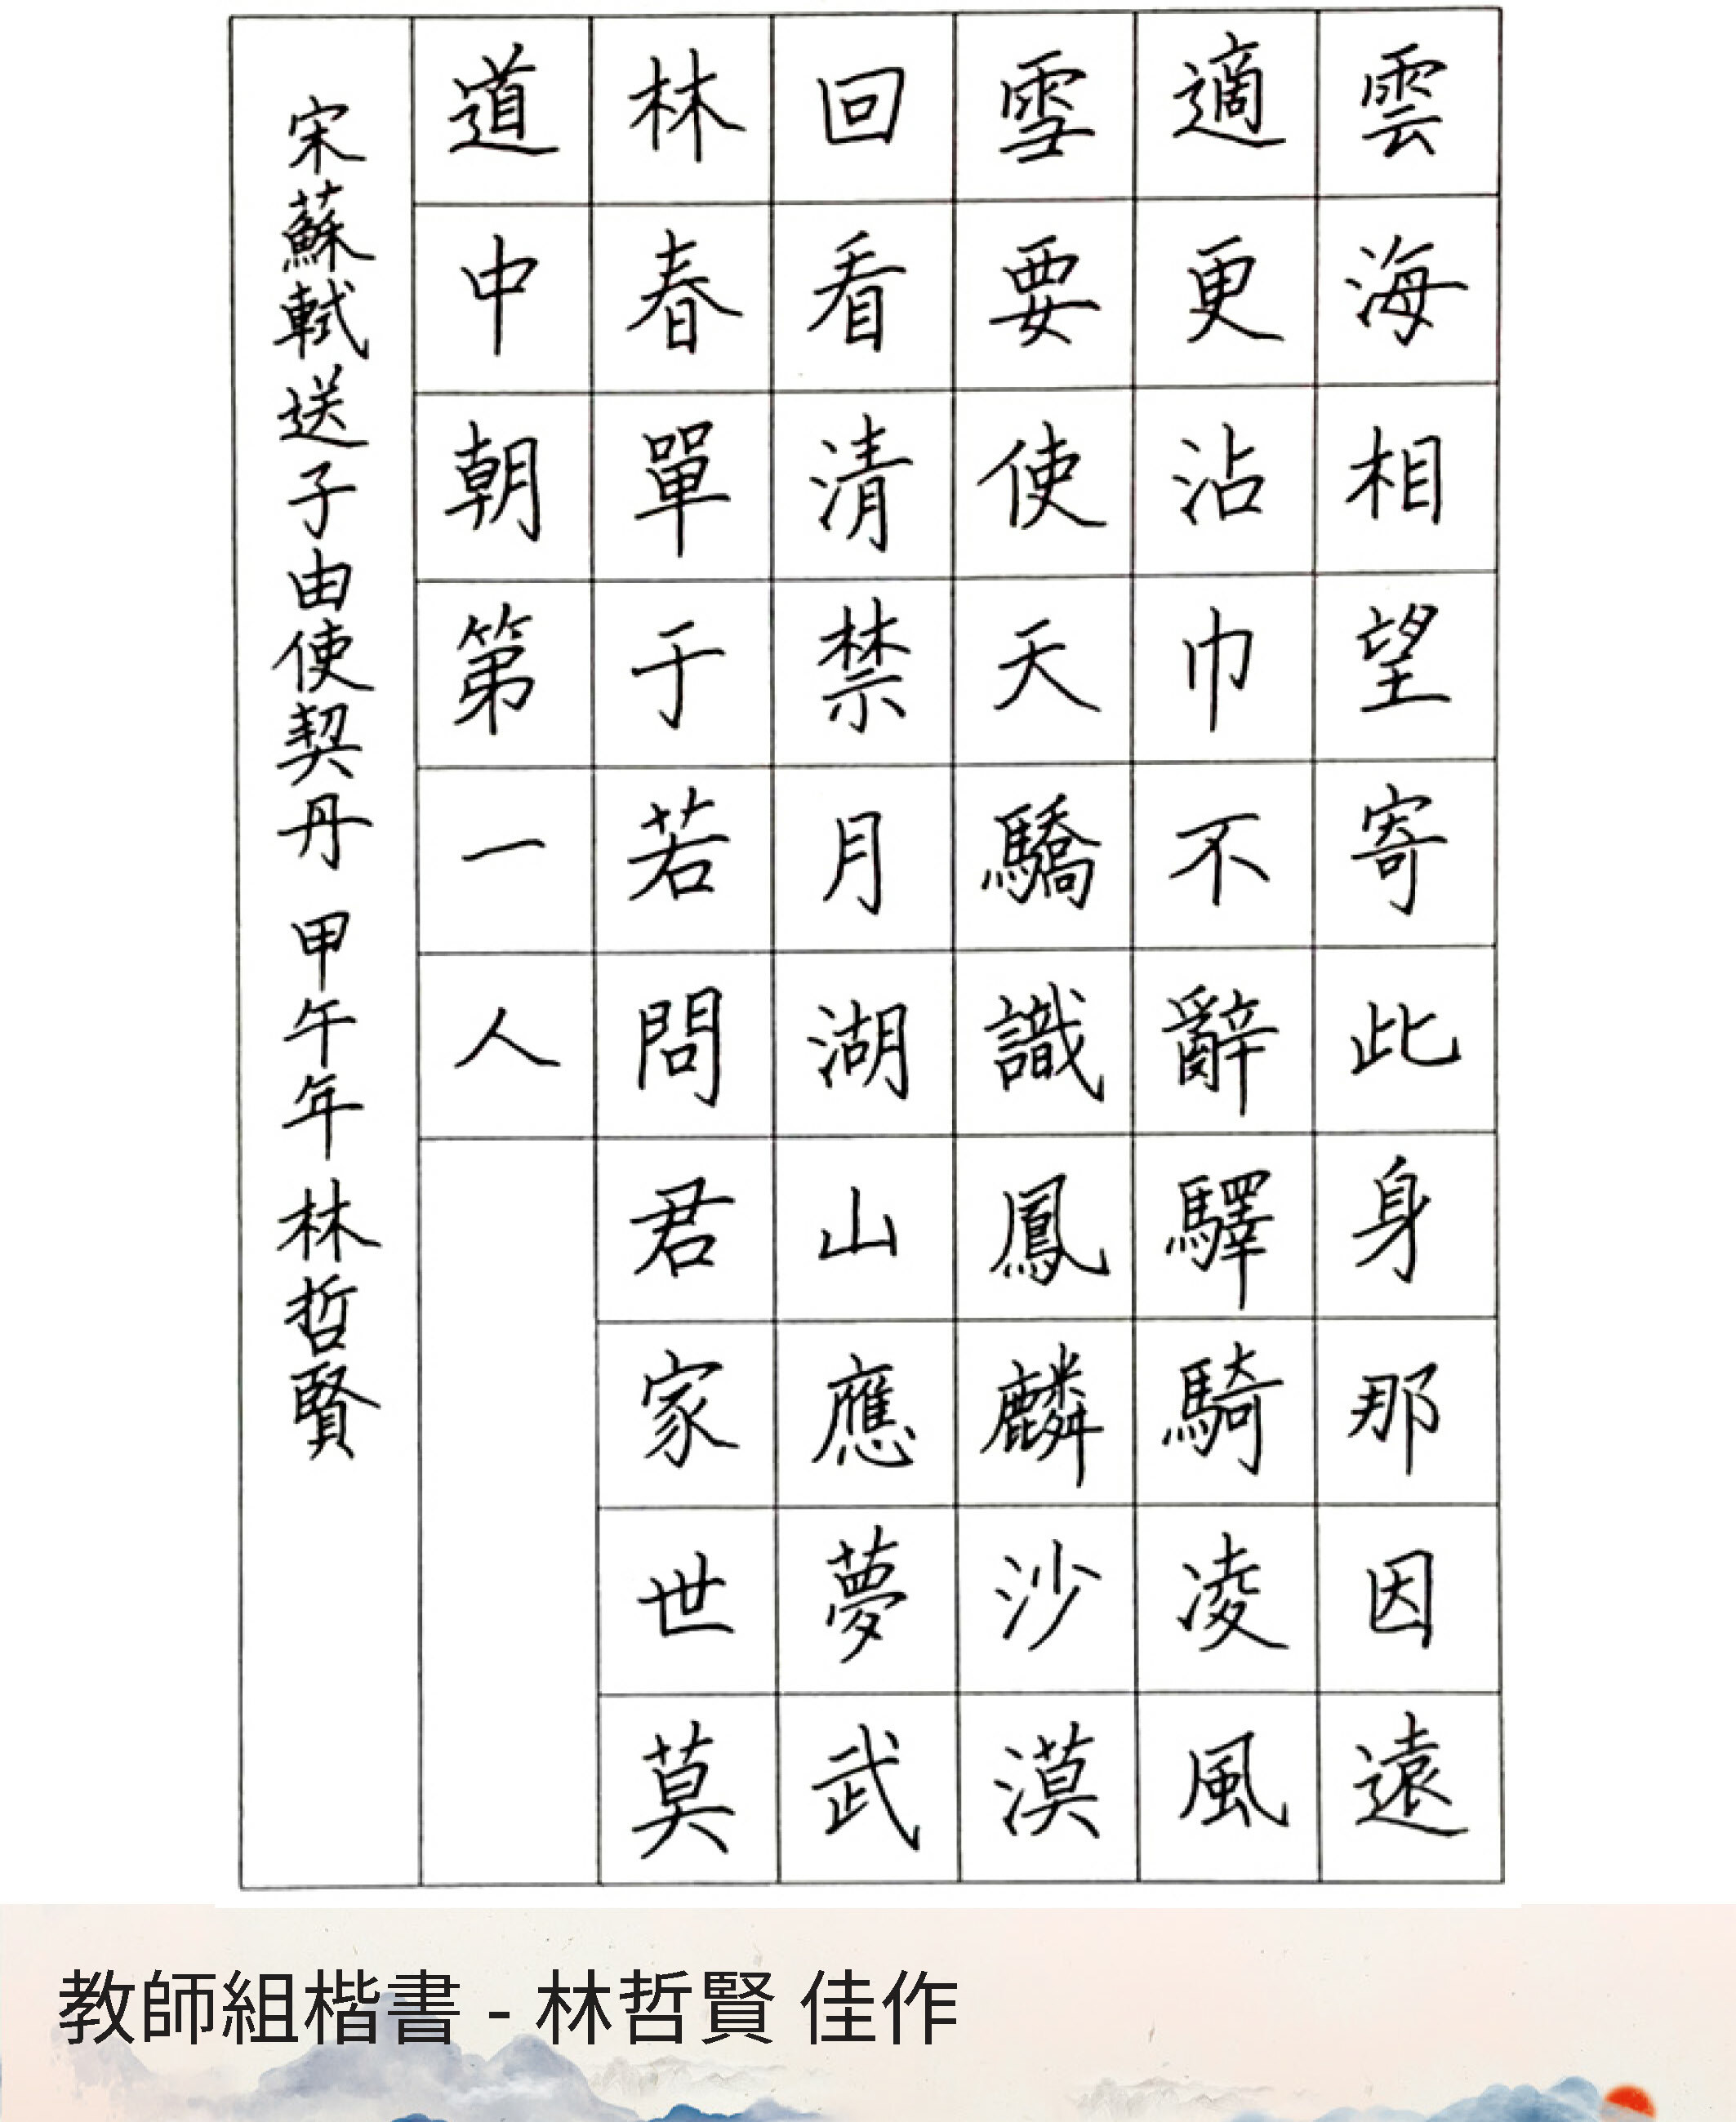 雲海相望寄此身那因遠
適更沾巾不辭驛騎凌風
雪要使天驕識鳳麟沙漠
回看清禁月湖山應夢武
林春單于若問君家世莫
道中朝第一人
宋蘇軾送子由使契丹 甲午年 林哲賢
教師組楷書 - 林哲賢 佳作